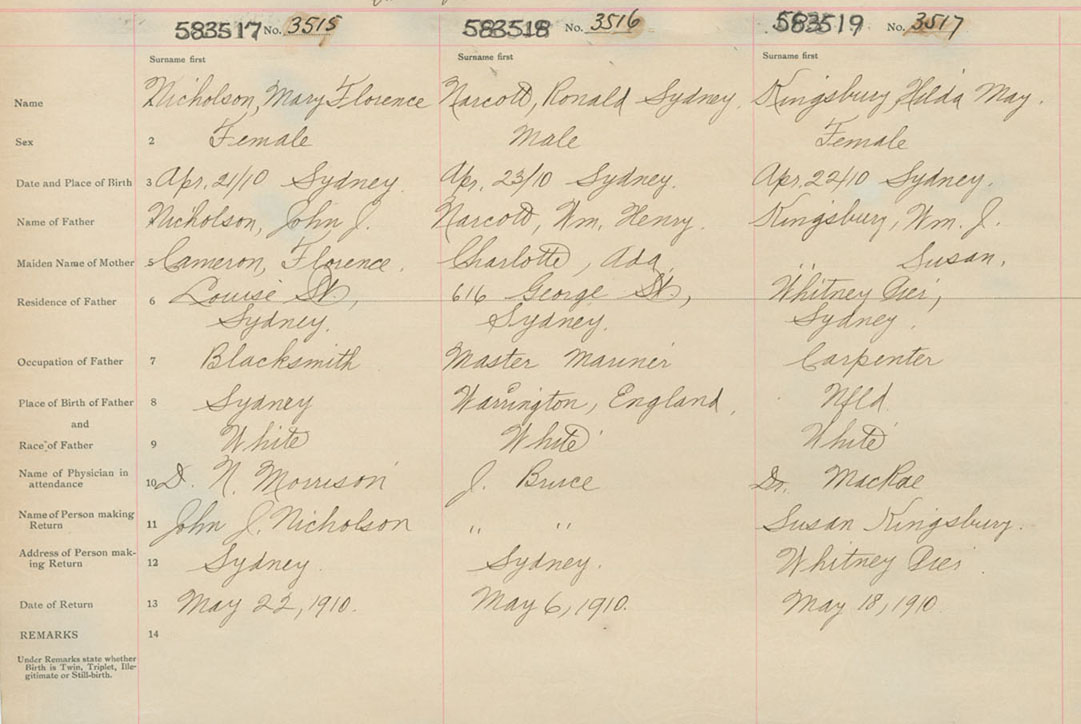 583517 No. 3515 583518 No. 3516 583519 No. 3517
Surname first Surname first Surname first
Name Nicholson, Mary Florence Narcott, Ronald Sydney. Kingsbury, Hilda May.
Sex 2 Female Male Female
Date and Place of Birth 3 Apr. 21/10 Sydney. Apr. 23/10 Sydney. Apr. 22/10 Sydney.
Name of Father Nicholson, John J. Narcott, Wm. Henry. Kingsbury, Wm. J.
Maiden Name of Mother 5 Cameron, Florence. Charlotte, Ada, " Susan.
Residence of Father 6 Louise St, 616 George St, Whitney Pier,
Sydney. Sydney. Sydney.
Occupation of Father 7 Blacksmith Master Mariner Carpenter
Place of Birth of Father 8 Sydney Warrington, England, Nfld.
and
Race of Father 9 White White White
Name of Physician in
attendance 10 D. N. Morrison J. Bruce Dr. MacRae
Name of Person making
Return 11 John J. Nicholson " " Susan Kingsbury.
Address of Person mak-
ing Return 12 Sydney. Sydney. Whitney Pier.
Date of Return 13 May 22, 1910. May 6, 1910. May 18, 1910
REMARKS 14
Under Remarks state whether
Birth is Twin, Triplet, Ille-
gitimate or Still-birth.